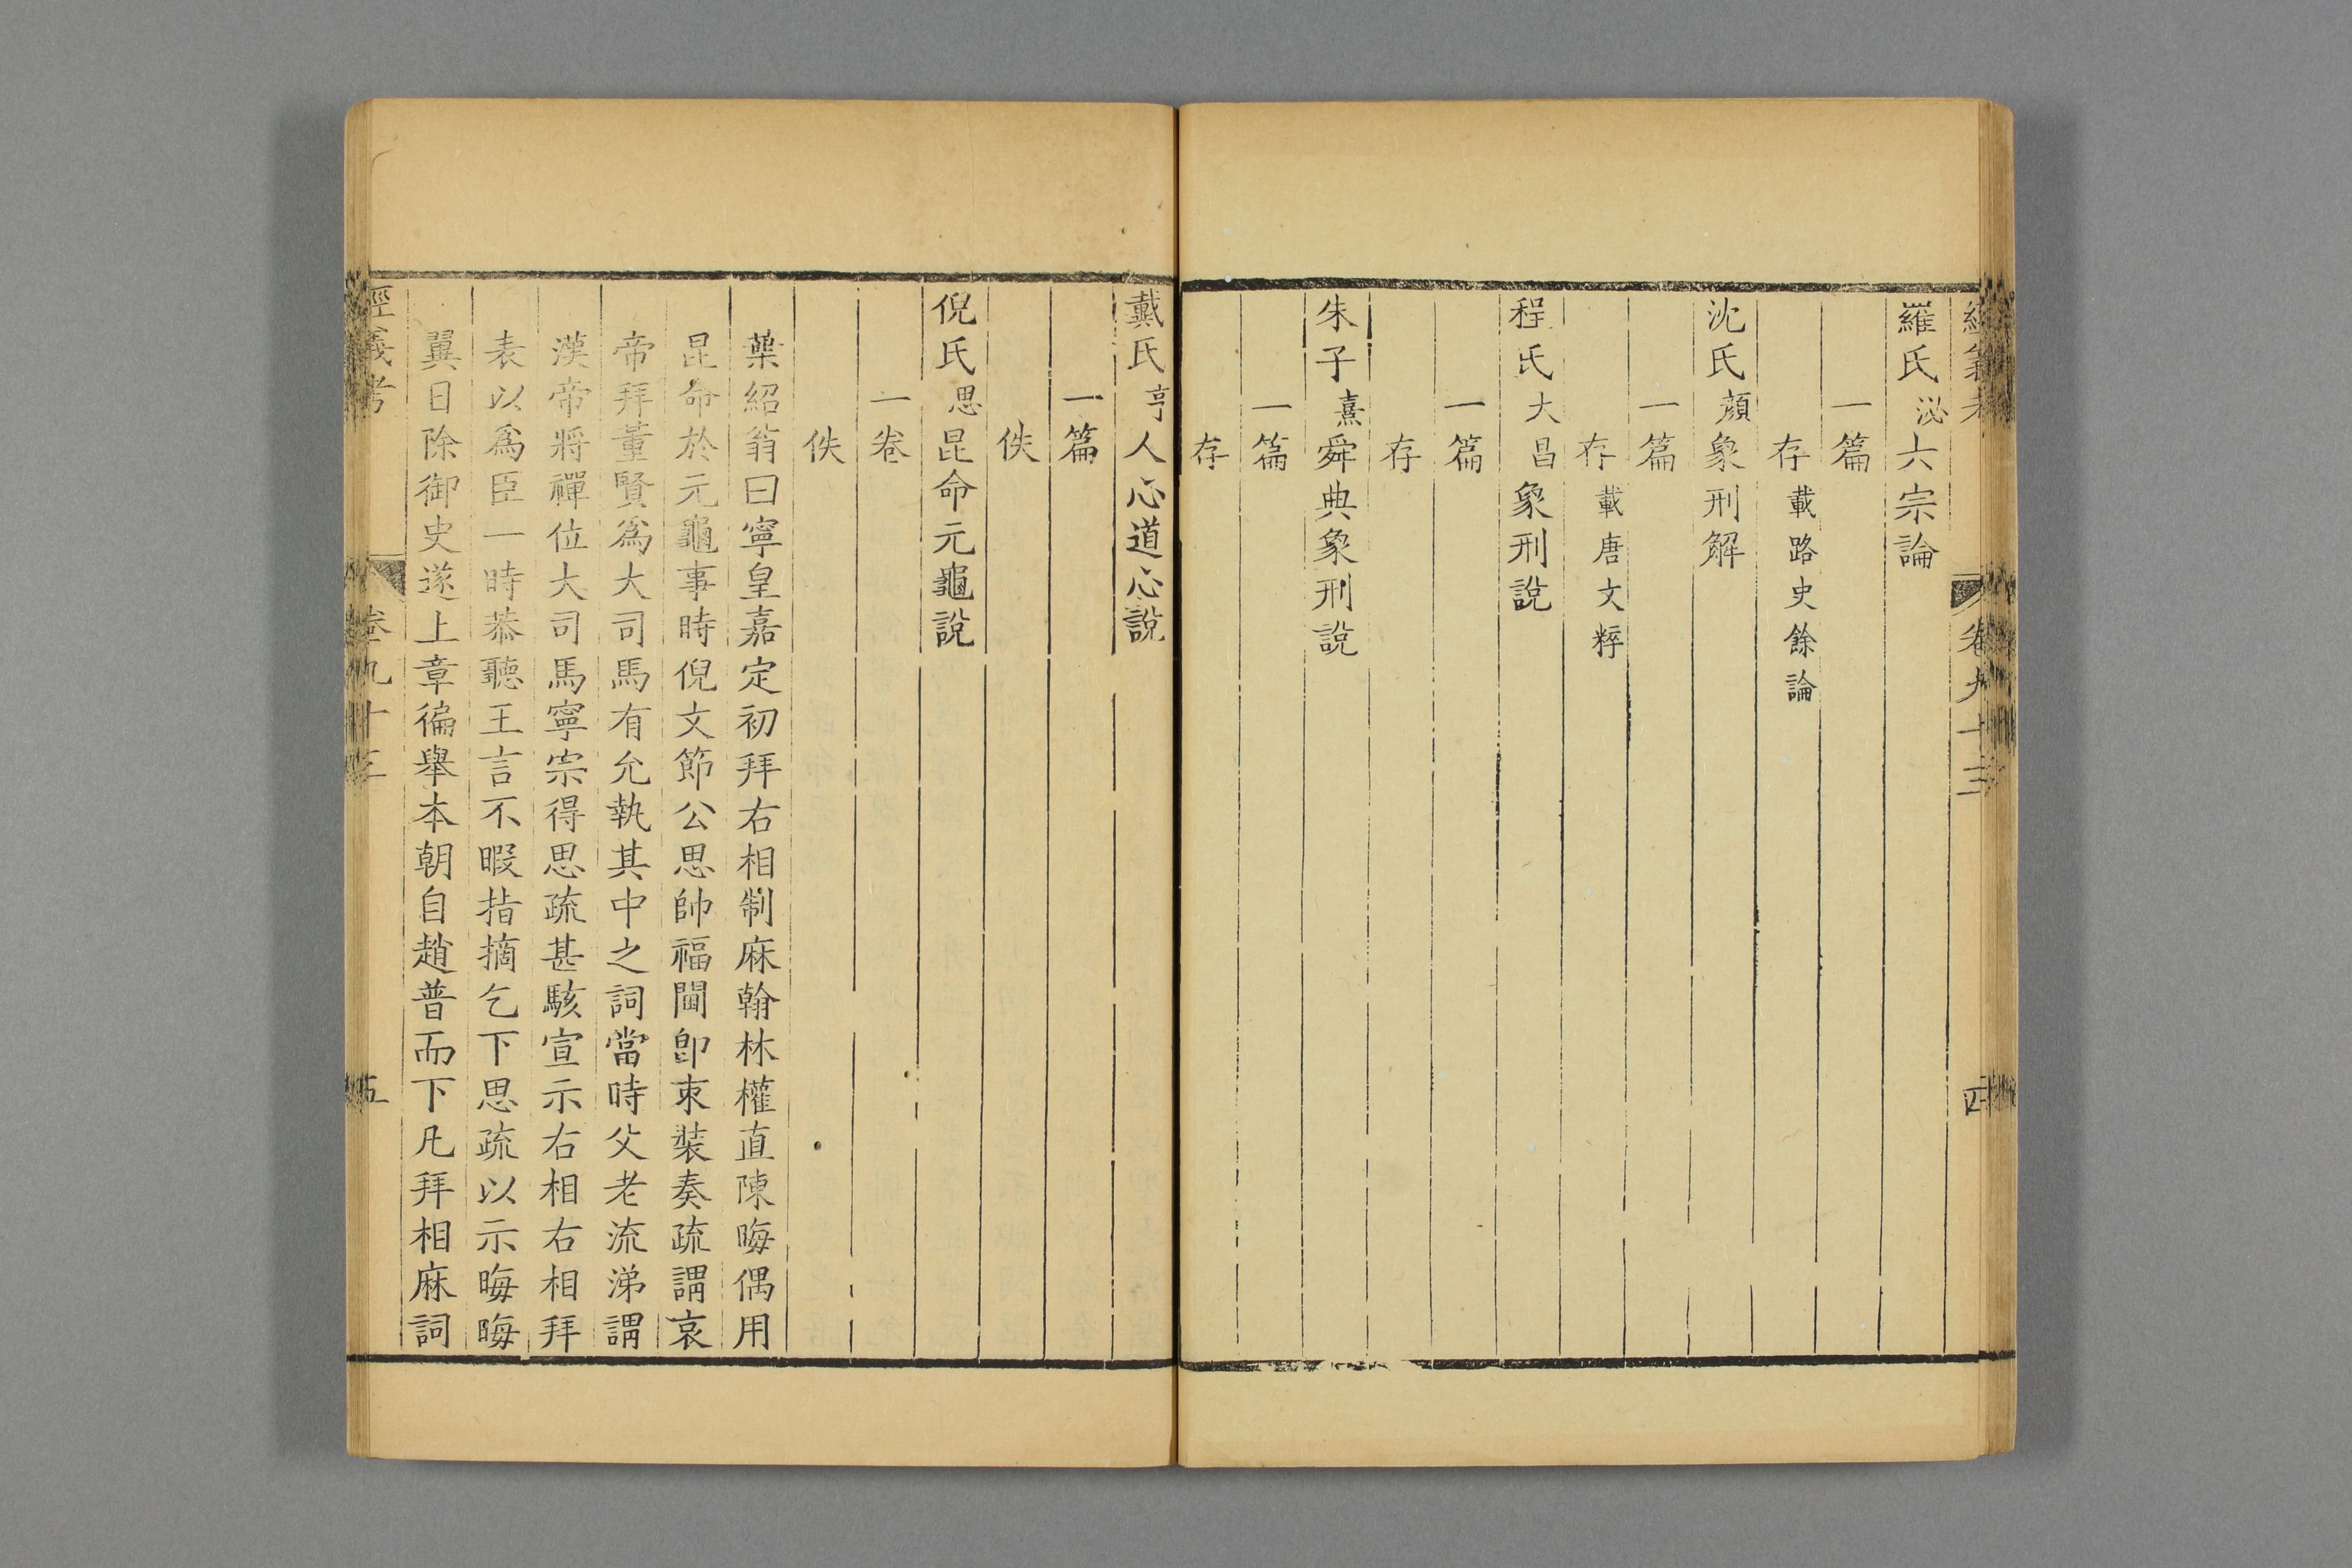 經義考 卷九十三 四
羅氏泌六宗論
一篇
存載路史餘論
沈氏顔象刑解
一篇
存載唐文粹
程氏大昌象刑說
一篇
存
朱子熹舜典象刑說
一篇
存
戴氏亨人心道心說
一篇
佚
倪氏思昆命元龜說
一卷
佚
葉紹翁曰寧皇嘉定初拜右相制麻翰林權直陳晦偶用
昆命於元龜事時倪文節公思帥福閩卽束裝奏疏謂哀
帝拜董賢爲大司馬有允執其中之詞當時父老流涕謂
漢帝將禪位大司馬寧宗得思疏甚駭宣示右相右相拜
表以爲臣一時恭聽王言不暇指摘乞下思疏以示晦晦
翼日除御史遂上章徧舉本朝自趙普而下凡拜相麻詞
經義考 卷九十三 五